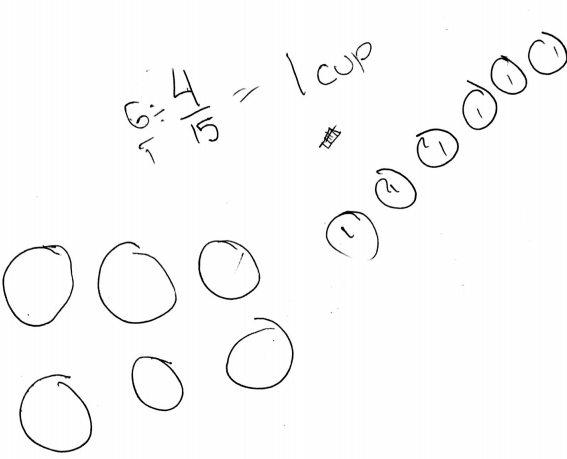 6 ÷ 4/15 = 1 cup
1 1 1 1 1 1